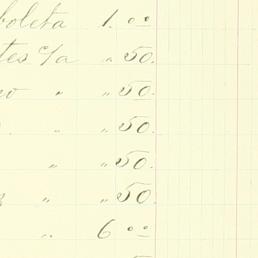 boleta 1.00
tes c/a " 50.
" " 50.
" " 50.
" " 50.
" " 50.
" 6 00